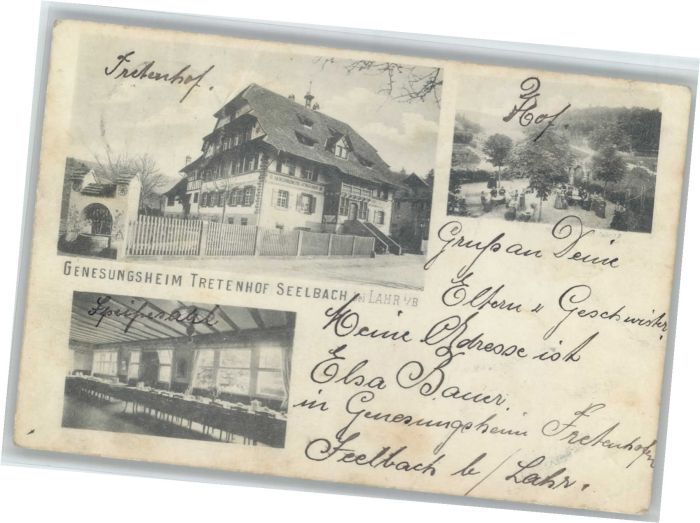 Tretenhof.
Hof.
GENESUNGSHEIM TRETENHOF SEELBACH BEI LAHR I/B
Speisesaal
Gruß an Deine
Eltern u Geschwister.
Meine Adresse ist
Elsa Bauer.
in Genesungsheim Tretenhofen
Seelbach b/ Lahr.